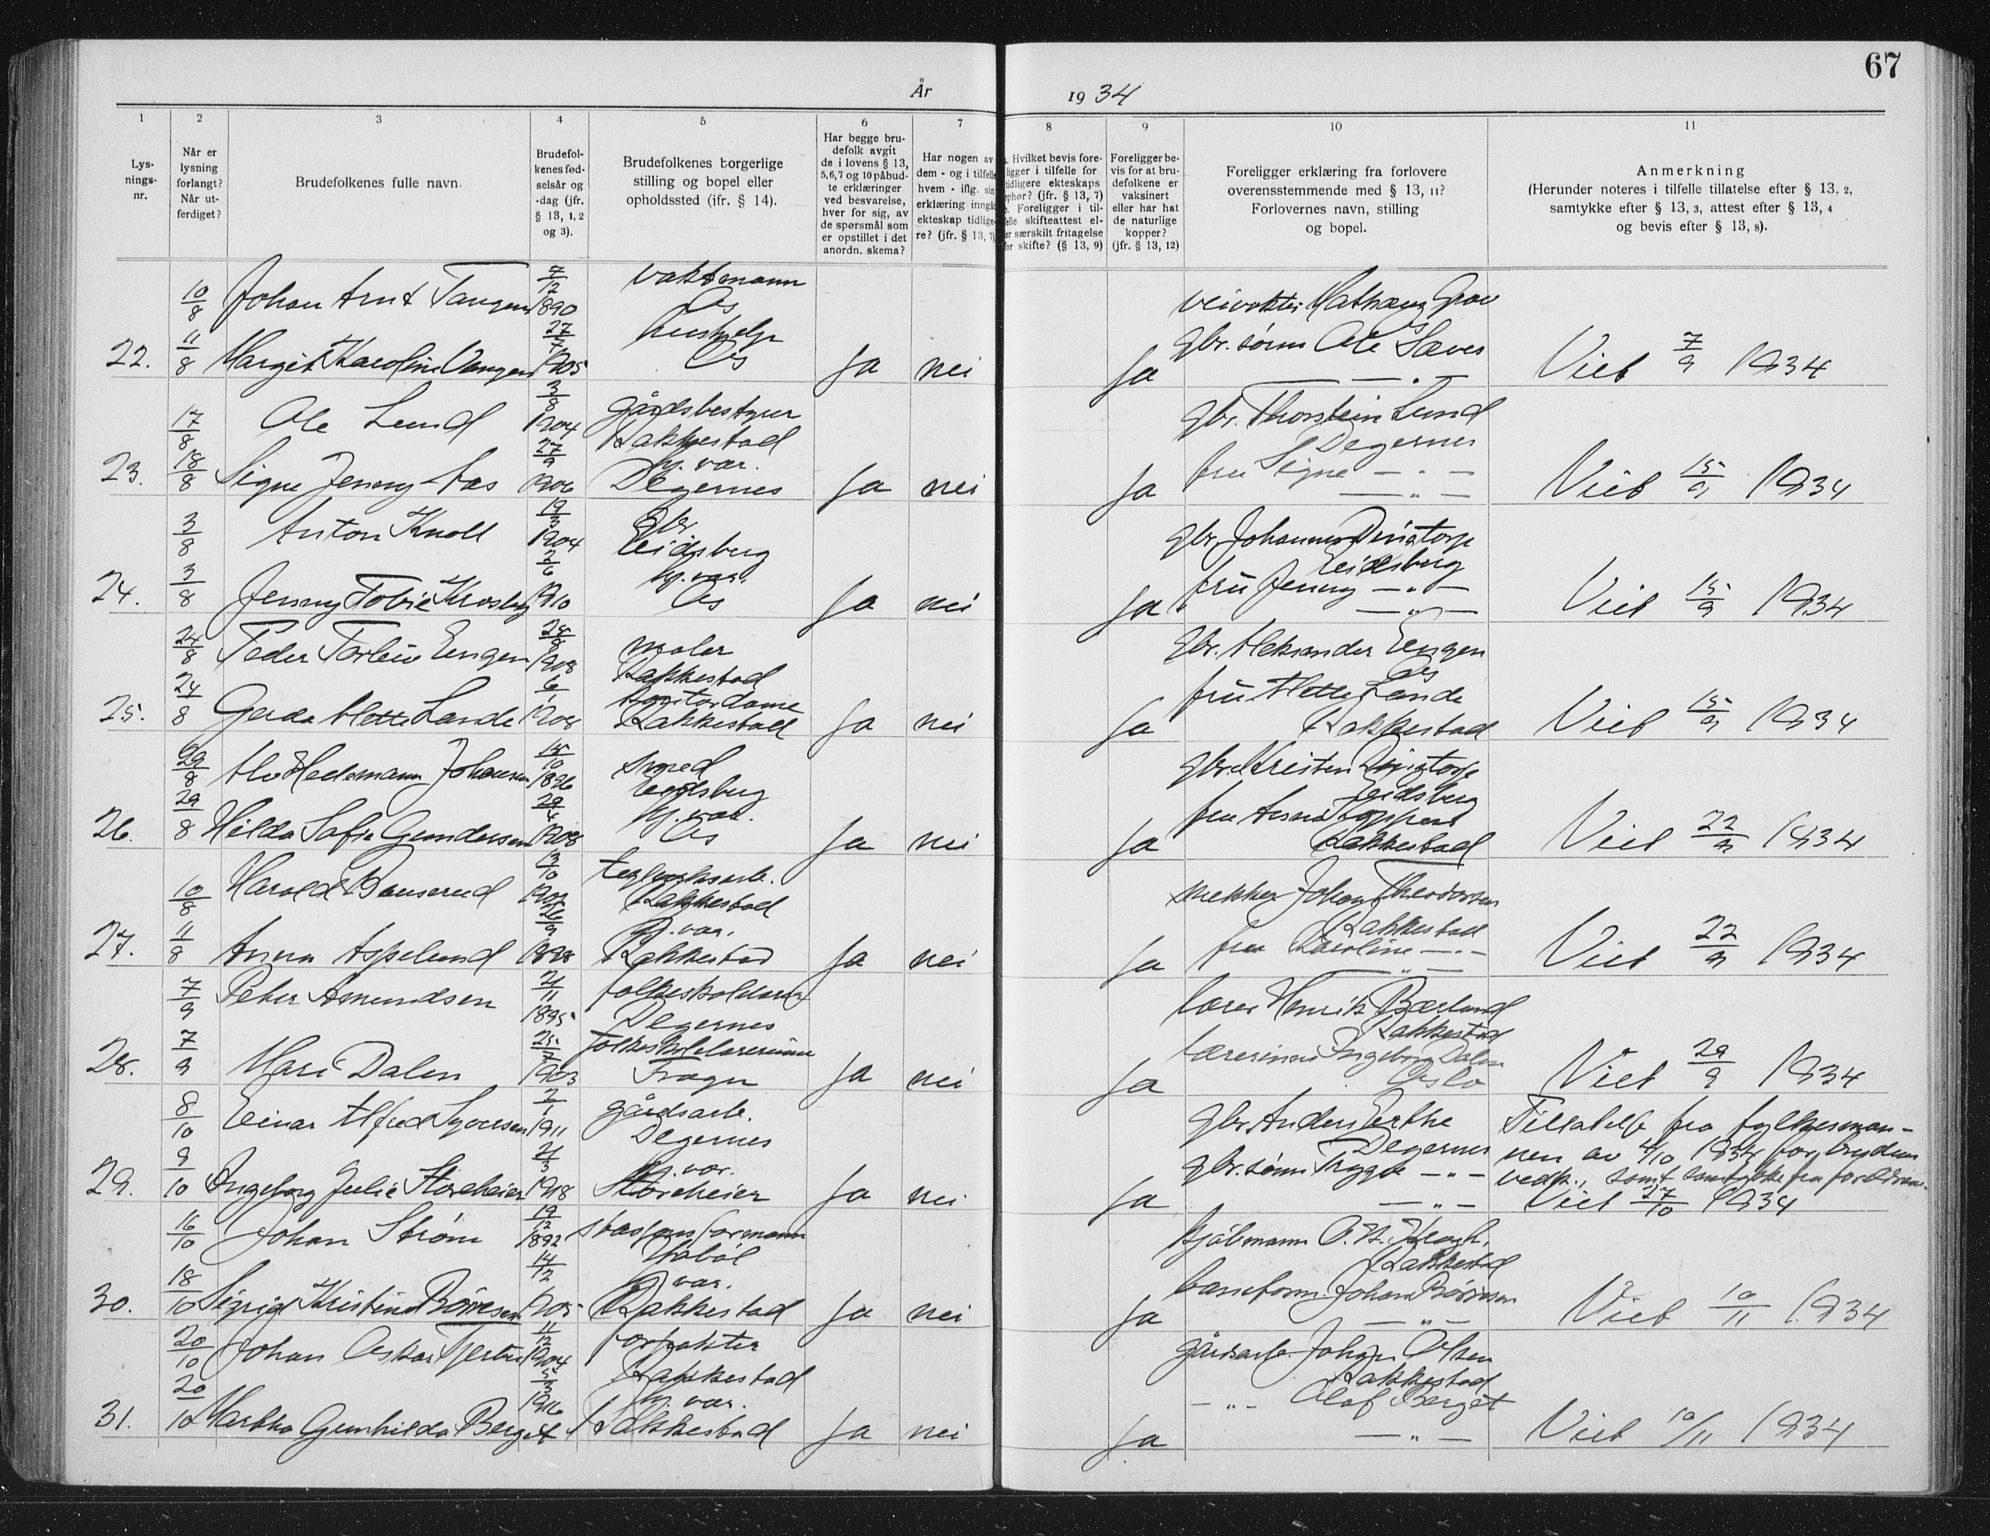 67
År 1934
1 2 3 4 5 6 7 8 9 10 11
Lys-
nings-
nr.
Når er
lysning
forlangt?
Når ut-
ferdiget?
Brudefolkenes fulle navn.
Brudefol-
kenes fød-
selsår og
-dag (jfr.
§ 13, 1, 2
og 3).
Brudefolkenes borgerlige
stilling og bopel eller
opholdssted (ifr. § 14).
Har begge bru-
defolk avgit
de i lovens § 13,
5,6,7 og 10 påbud-
te erklæringer
ved besvarelse,
hver for sig, av
de spørsmål som
er opstillet i det
anordn. skema?
Har nogen av
dem - og i tilfelle
hvem - iflg. sin
erklæring inngå
ekteskap tidlige-
re? (jfr. § 13, 7)
Hvilket bevis fore-
ligger i tilfelle for
tidligere ekteskaps
ophør? (jfr. § 13, 7)
Foreligger i til-
felle skifteattest el-
ler særskilt fritagelse
for skifte? (§ 13, 9)
Foreligger be-
vis for at bru-
defolkene er
vaksinert
eller har hat
de naturlige
kopper?
(jfr. § 13, 12)
Foreligger erklæring fra forlovere
overensstemmende med § 13, 11?
Forlovernes navn, stilling
og bopel.
Anmerkning
(Herunder noteres i tilfelle tillatelse efter § 13, 2,
samtykke efter § 13, 3, attest efter § 13, 4
og bevis efter § 13, 8).
10/8 Johan Arnt Tangen 7/12 1890 vaktmann Os veivokter
22. 11/8 Margit Karoline Vangen 27/7 1905 hushjelp Os Ja nei Ja gbr.sønn Ole Sæves Viet 7/9 1934
17/8 Ole Lund 3/8 1904 gårdsbestyrer Rakkestad gbr. Thorstein Lund Degernes
23. 18/8 Signe Jenny Aas 27/9 1906 hj.vær. Degernes Ja nei Ja fru Signe — " — Viet 15/9 1934
3/8 Anton Knoll 19/3 1904 gbr. Eidsberg gbr. Johannes Eidsberg
24. 3/8 Jenny Tovie 2/6 1910 hj.vær. Os Ja nei Ja fru Jenny — " — Viet 15/9 1934
24/8 Peder Torleiv Engen 28/8 1908 maler Rakkestad gbr. Aleksander Engen Os
25. 24/8 Gerda Lande 6/1 1908 Rakkestad Ja nei Ja fru Lande Rakkestad Viet 15/9 1934
29/8 Johansen 15/10 1896 smed Eidsberg gbr. Kristen Eidsberg
26. 29/8 Hilda Sofie Gundersen 29/4 1908 hj.vær. Os Ja nei Ja fru Rakkestad Viet 22/9 1934
10/8 Harald 13/10 teglverksarb. Rakkestad Johan Theodorsen Rakkestad
27. 11/8 Anna Aspelund 1898 hj.vær. Rakkestad Ja nei Ja fru Karoline — " — Viet 22/9 1934
7/9 Peter Amundsen 2/11 1895 folkeskolelærer Degernes lærer Henrik Bærlund Rakkestad
28. 7/9 Mari Dalen 1903 folkeskolelærerinne Ja nei Ja lærerinne Ingeborg Dalen Oslo Viet 29/9 1934
8/10 Einar Alfred Syversen 2/1 1911 gårdsarb. Degernes gbr. Anders Erthe Degernes Tillatelse fra fylkesman-
nen av 4/10 1934 for bruden
29. 9/10 Ingeborg Julie Storeheier 2/3 1918 hj.vær. Storeheier Ja nei Ja gbr.sønn Trygve — " — vedk., samt samtykke fra
Viet 27/10 1934
16/10 Johan Strøm 19/12 1892 stasjonsformann Rakkestad
30. 18/10 Sigrid Kristine Børresen 14/12 1905 hj.vær. Rakkestad Ja nei Ja baneform. Johan Børresen — " — Viet 10/11 1934
20/10 Johan Oskar 11/12 1904 forpakter Rakkestad gårdsarb. Johan Olsen Rakkestad
31. 20/10 Martha Gunhilda Berget 5/3 1916 hj.vær. Rakkestad Ja nei Ja — " — Olaf Berget — " — Viet 10/11 1934